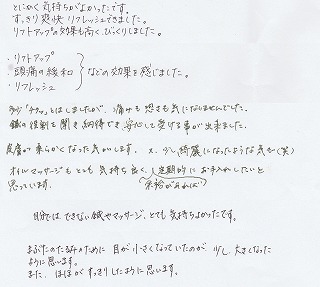 とにかく気持ちがよかったです。
すっきり爽快リフレッシュできました。
リフトアップの効果も高く、びっくりしました。
・リフトアップ
・頭痛の緩和 などの効果を感じました。
・リフレッシュ
多少“チクッ”とはしましたが、痛みも恐さも気になりませんでした。
鍼の役割を聞き納得でき、安心して受ける事が出来ました。
皮膚が柔らかくなった気がします。又、少し綺麗になったような気が(笑)
オイルマッサージもとても気持ち良く、定期的にお手入れしたいと
思っています。 (余裕があれば)
自分ではできない鍼やマッサージ、とても気持ちよかったです。
まぶたのたるみのために目が小さくなっていたのが、少し大きくなった
ように思います。
また、ほほがすっきりしたように思います。